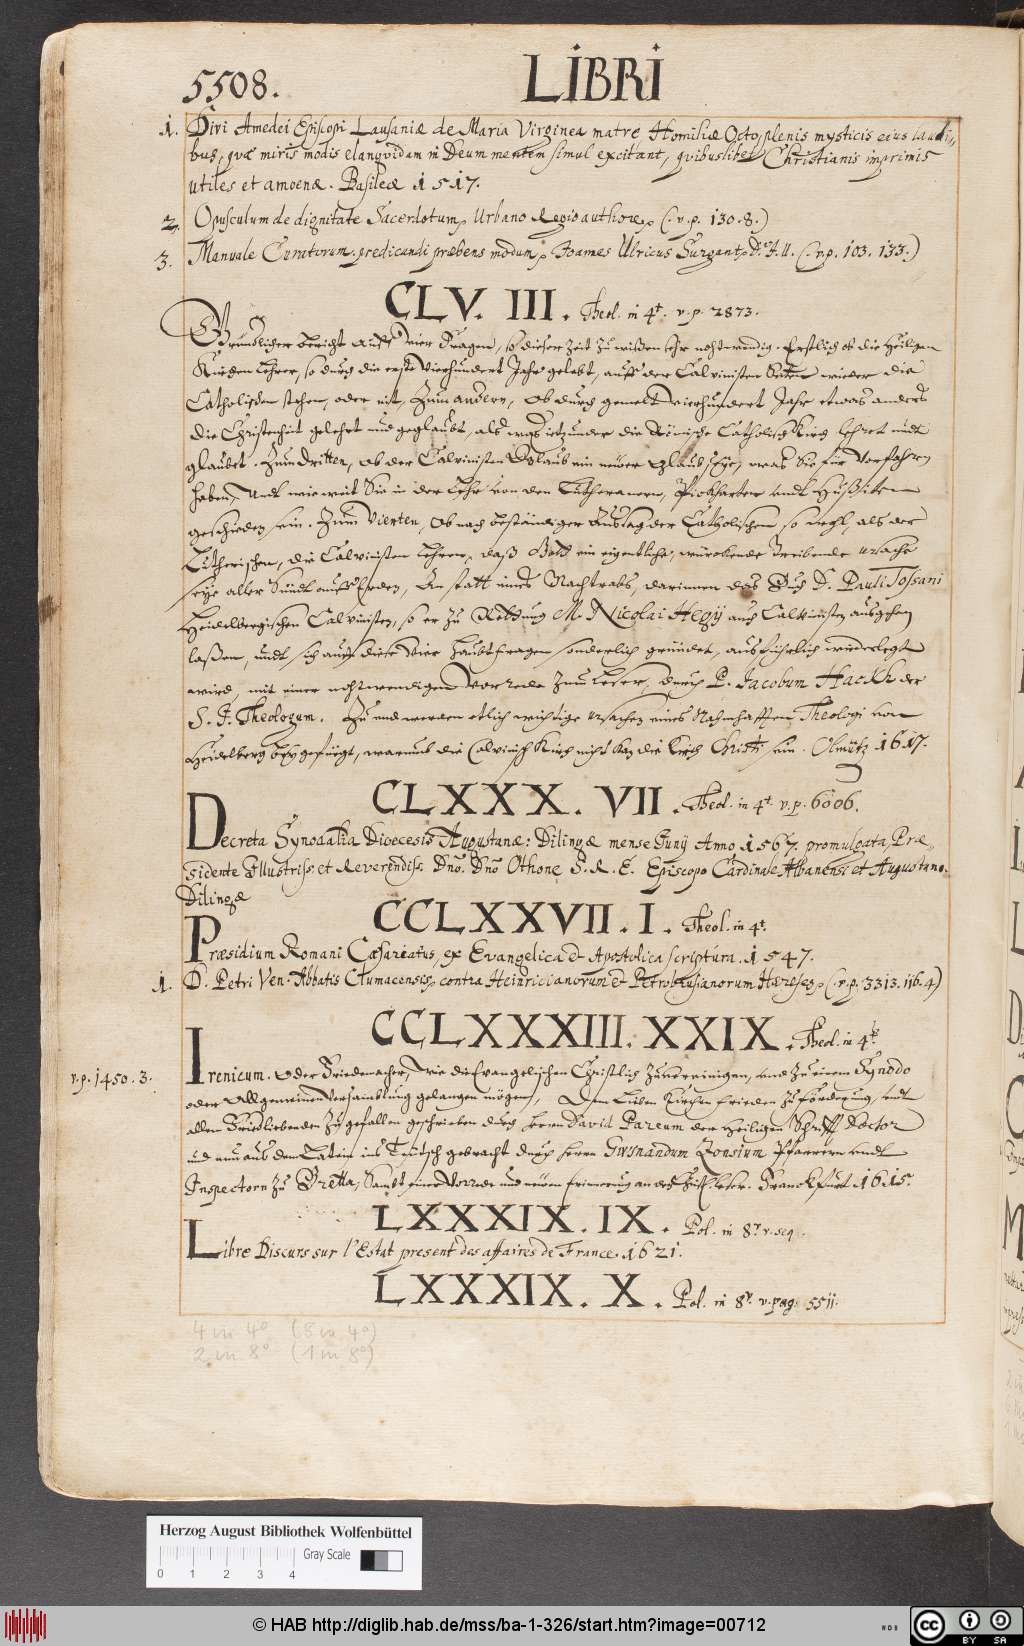 5508. LIBRI
1. Divi Amedei Episcopi Lausaniæ de Maria Virginea matre Homiliæ Octo plenis mysticis eius laudi-
bus, quæ miris modis elanguidam in Deum mentem simul excitant, quibuslibet Christianis imprimis
utiles et amoenæ. Basileæ 1517.
2. Opusculum de dignitate Sacerdotum, Urbano Regio authore, (. v. p. 130. 8.)
3. Manuale Curatorum. predicandi præbens modum, Joannes Ulricus Surgant, Dr. J. U. (. v. p. 103. 133.)
CLV. III. Theol. in 4t. v. p. 2873.
Gründlicher bericht auff vier Fragen, so dieser Zeit zu wissen sehr nohtwendig. Erstlich ob die Heiligen
Kirchen Lehrer, so durch die erste vierhundert Jahr gelebt, auff der Calvinisten Seiten wieder die
Catholischen stehen, oder nit, Zum andern, Ob durch gemelt vierhundert Jahr etwas anders
die Christenheit gelehrt und geglaubt, als was ietzunder die Römische Catholisch Kirch lehret undt
glaubet. Zum dritten, ob der Calvinisten Glaub ein neuer Glaub seye, was Sie für Vorfahren
haben, Undt wie weit Sie in der Lehr von den Lutheranern, Pickharten undt Hußsiten
geschieden sein. Zum Vierten, Ob nach beständiger Aussag der Catholischen so wohl, als der
Lutherischen, die Calvinisten lehren, daß Gott ein eigentliche, würckende Treibende ursache
seye aller Sündt auff Erden, An statt eines Nachtrabs, darinnen das Buch D. Pauli Tossani
Heidelbergischen Calvinisten, so er zu Rettung M. Nicolai Hegÿ auch Calvinisten ausgehen
laßen, undt sich auff diese vier Haubtfragen sonderlich gründet, ausführlich wiederlegt
wird, mit einer nohtwendigen Vorrede Zum Leser, durch P. Jacobum Hackh der
S. J. Theologum. Zu end werden etlich wichtige ursachen eines Nahmhafften Theologi von
Heidelberg beygefüegt, warumb die Calvinisch Kirch nicht kan die Kirch Christi sein. Olmütz 1617.
CLXXX. VII. Theol. in 4t. v. p. 6006.
Decreta Synodalia Dioecesis Augustanæ: Dilingæ mense Junÿ Anno 1567. promulgata, Præ-
sidente Illustriss: et Reverendiss. Dno. Dno Othone S. R. E. Episcopo Cardinale Albanensi et Augustano.
Dilingæ
CCLXXVII. I. Theol. in 4t.
Præsidium Romani Cæsareatus, ex Evangelica & Apostolica scriptura. 1547.
1. D. Petri Ven. Abbatis Clumacensis, contra Heinricianorum & Petrobrusianorum Hæreses, (. v. p. 3313. 116. 4)
CCLXXXIII. XXIX. Theol. in 4t.
v. p. 1450. 3.
Irenicum. Oder Friedemacher, wie die Evangelischen Christlich Zuvereinigen, und zu einem Synodo
oder Allgemeinen Versamblung gelangen mögen, Dem Lieben Kirchen frieden zu förderung, undt
allen Friedliebenden zu gefallen geschrieben durch Herrn David Pareum der Heiligen Schrifft Doctor
und nun aus dem Latein ins Teutsch gebracht durch Herrn Gwinandum Zonsium Pfarrern undt
Inspectorn zu Bretta, Sambt einer Vorrede und neüen Erinnerung an den Leser. Franckfurt 1615.
LXXXIX. IX. Pol. in 8t. v. seq.
Libre Discurs sur l'Estat present des affaires de France. 1621.
LXXXIX. X. Pol. in 8t. v. pag. 5511.
4 in 4° (8 in 4°)
2 in 8° (1 in 8°)
Herzog August Bibliothek Wolfenbüttel
Gray Scale
0 1 2 3 4
© HAB http://diglib.hab.de/mss/ba-1-326/start.htm?image=00712
cc BY SA